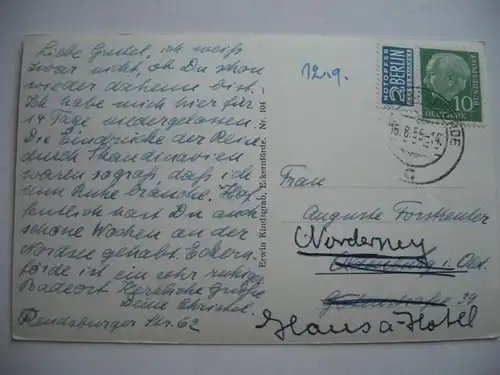 Liebe Gustel, ich weiß
zwar nicht, ob Du schon
wieder daheim bist.
Ich habe mich hier für
14 Tage niedergelassen.
Die Eindrücke der Reise
durch Skandinavien
waren so groß, daß ich
nun Ruhe brauche. Hof-
fentlich hast Du auch
schöne Wochen an der
Nordsee gehabt. Eckern-
förde ist ein sehr ruhiger
Badeort. Herzliche Grüße
Deine Christel.
Rendsburger Str. 62
Erwin Kindsgrab, Eckernförde. Nr. 104
12.9.
NOTOPFER
2 BERLIN
STEUERMARKE
DEUTSCHE
BUNDESPOST
10
16.8.55-14
Frau
Auguste
Norderney
i. Old.
39
Haus a-Hotel